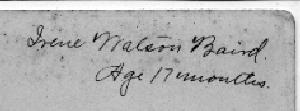 Irene Watson Baird.
Age 17 months.